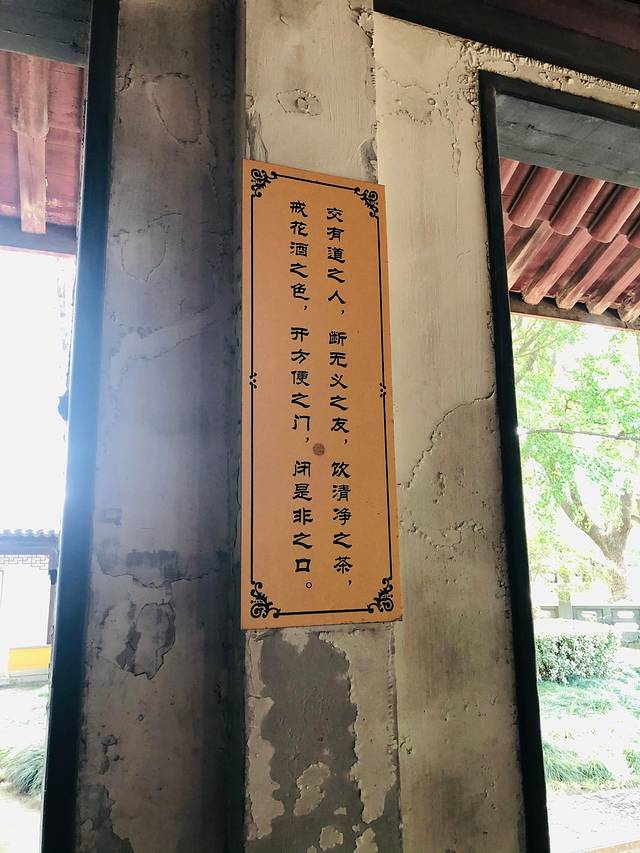 交有道之人，断无义之友，饮清净之茶，
戒花酒之色，开方便之门，闭是非之口。